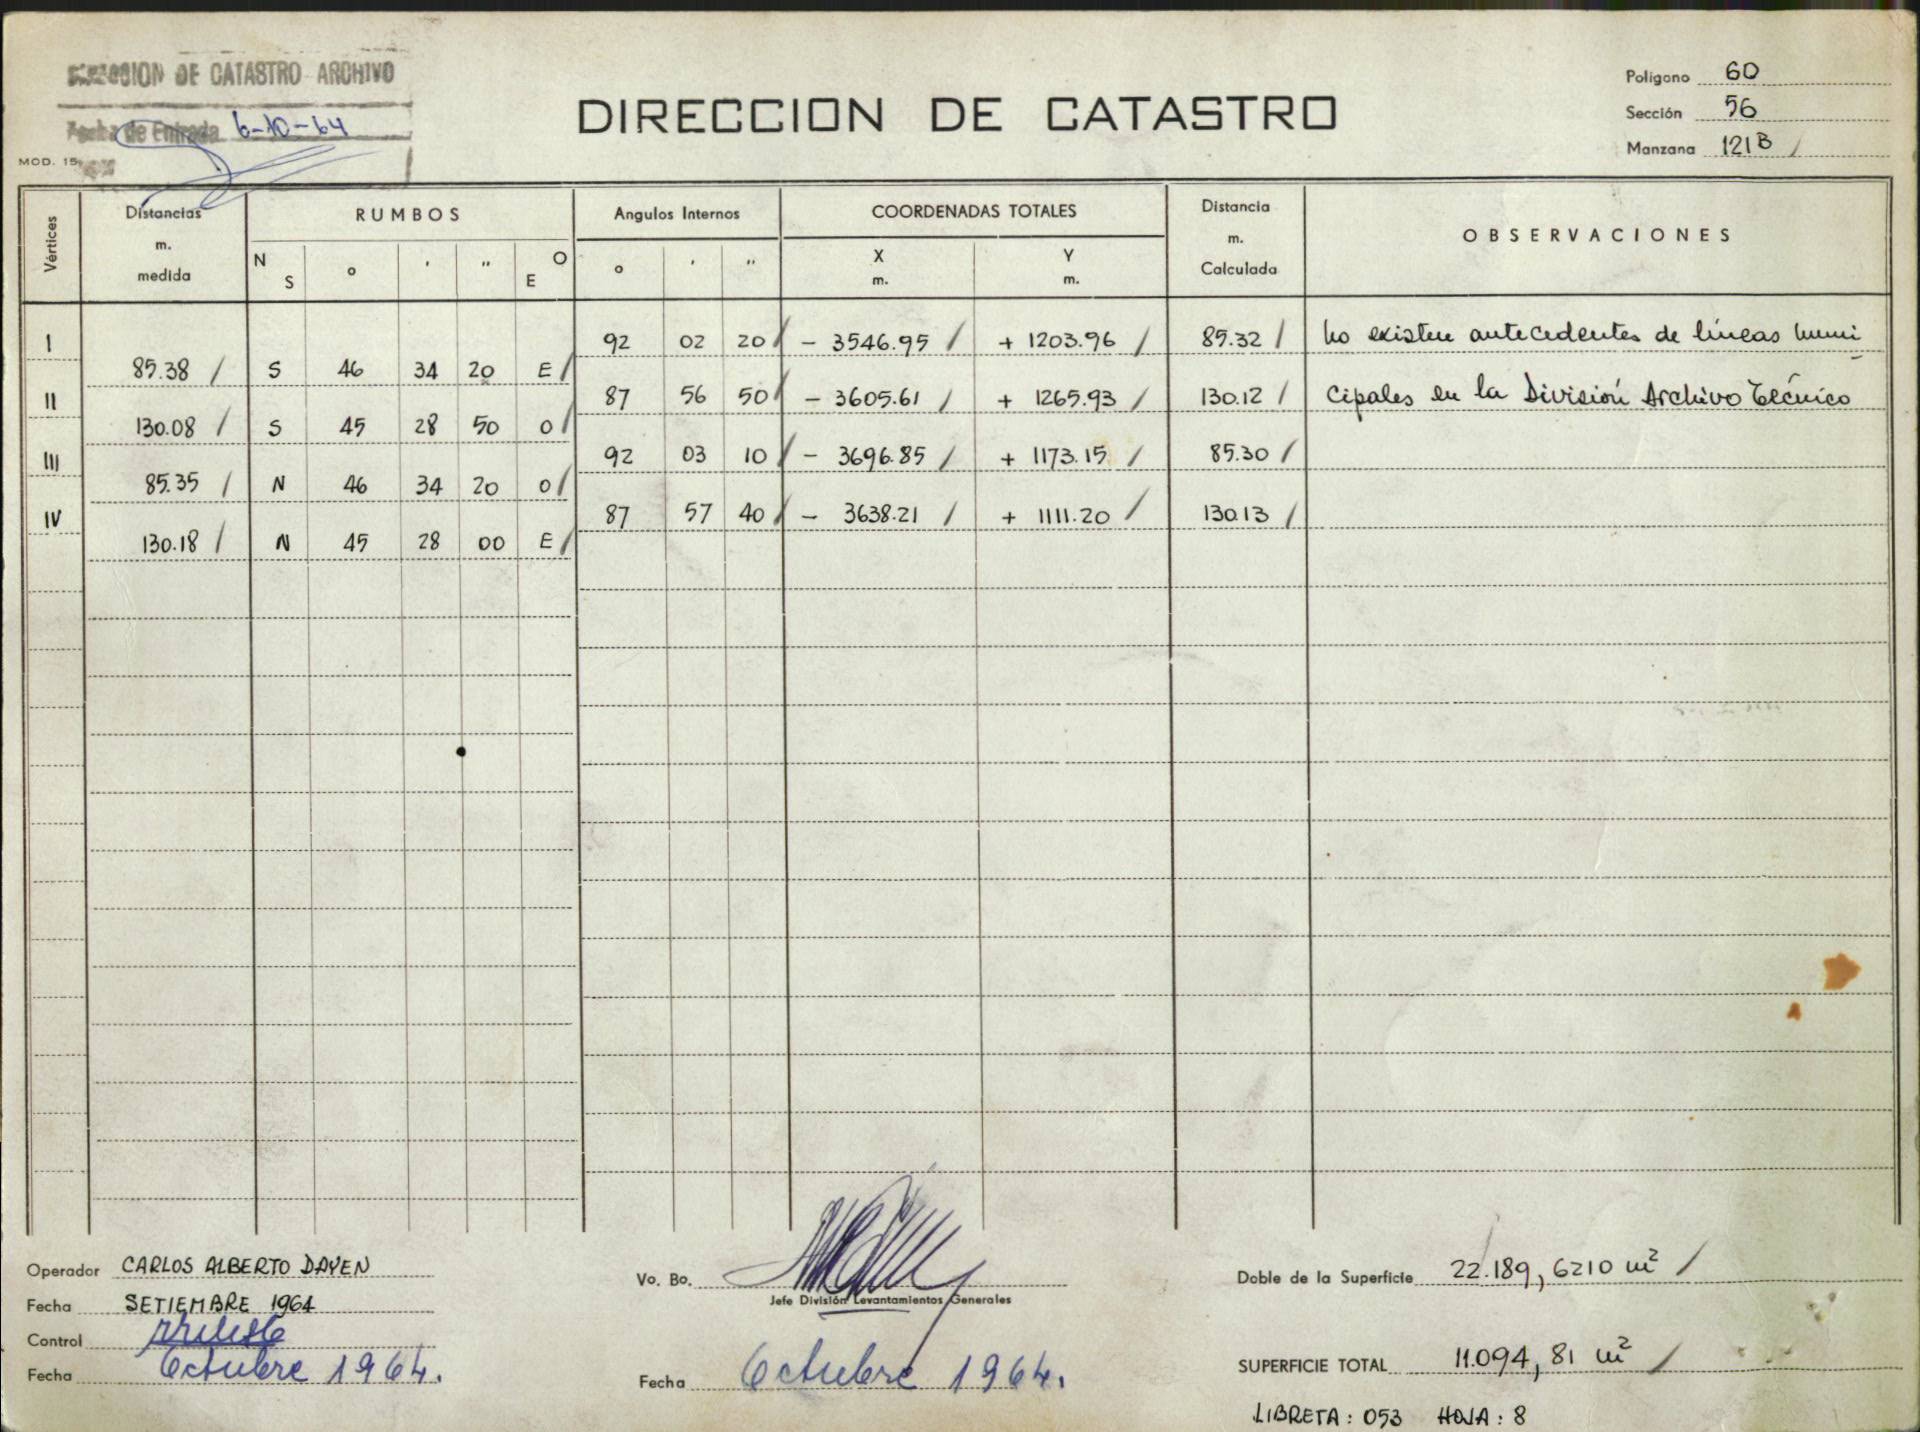 DIRECCION DE CATASTRO ARCHIVO
Fecha de Entrada 6-10-64
MOD. 15
DIRECCION DE CATASTRO
Polígono 60
Sección 56
Manzana 121B /
Vértices
Distancias m. medida
RUMBOS
N S ° ' " O E
Angulos Internos
° ' "
COORDENADAS TOTALES
X m. Y m.
Distancia m. Calculada
OBSERVACIONES
I 92 02 20 / - 3546.95 / + 1203.96 / 85.32 / No existen antecedentes de líneas muni
85.38 / S 46 34 20 E /
II 87 56 50 / - 3605.61 / + 1265.93 / 130.12 / cipales en la División Archivo Técnico
130.08 / S 45 28 50 O /
III 92 03 10 / - 3696.85 / + 1173.15 / 85.30 /
85.35 / N 46 34 20 O /
IV 87 57 40 / - 3638.21 / + 1111.20 / 130.13 /
130.18 / N 45 28 00 E /
Operador CARLOS ALBERTO DAYEN
Fecha SETIEMBRE 1964
Control
Fecha Octubre 1964.
Vo. Bo.
Jefe División Levantamientos Generales
Fecha Octubre 1964.
Doble de la Superficie 22.189,6210 m² /
SUPERFICIE TOTAL 11.094,81 m² /
LIBRETA: 053 HOJA: 8